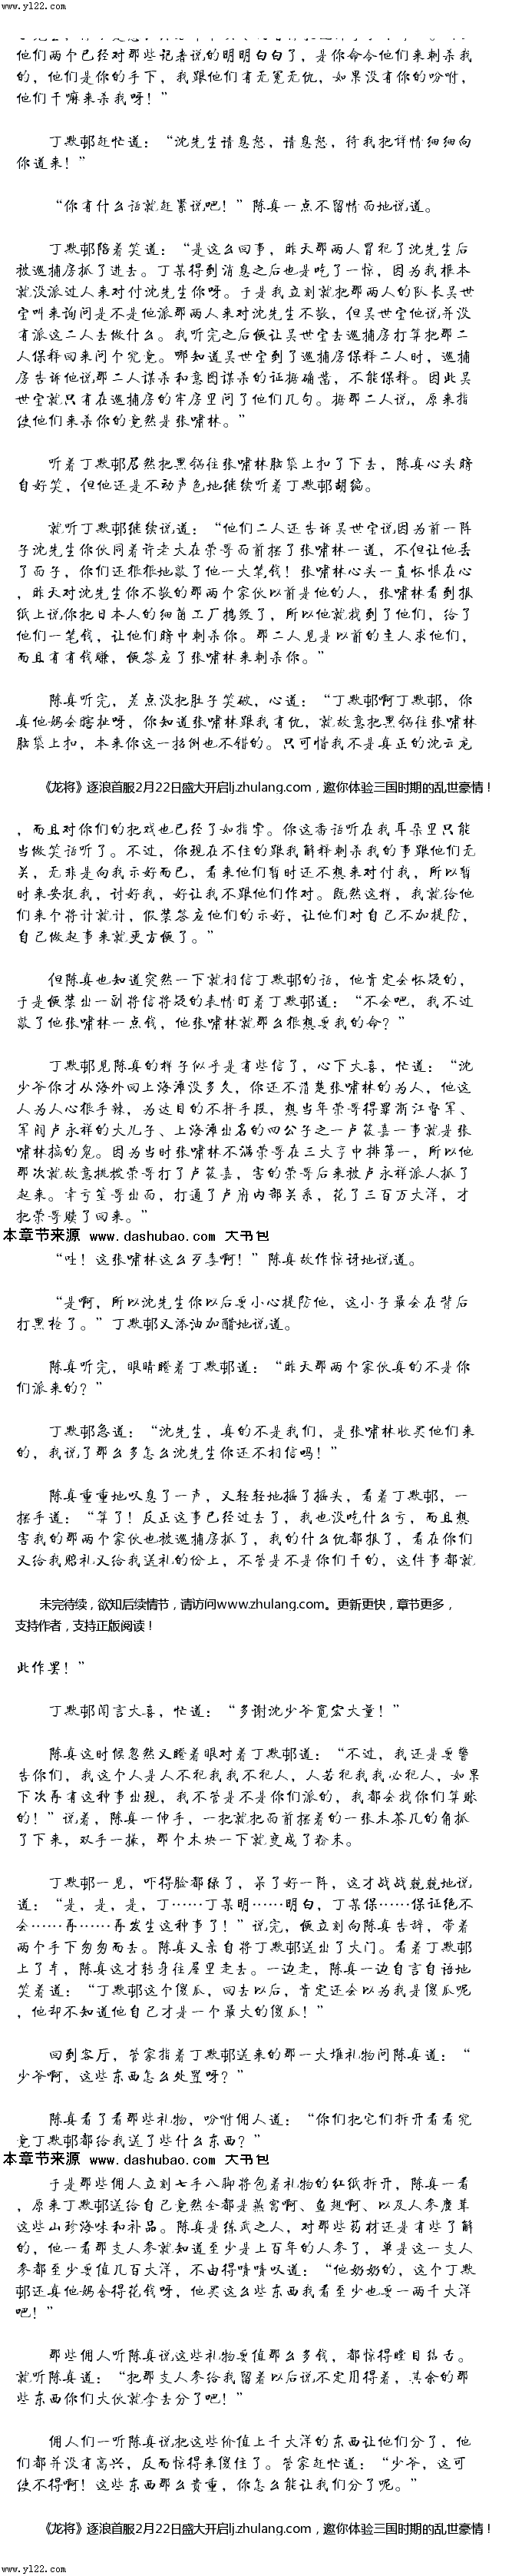 www.yl22.com
他们两个已经对那些记者说的明明白白了，是你命令他们来刺杀我
的，他们是你的手下，我跟他们有无冤无仇，如果没有你的吩咐，
他们干嘛来杀我呀！”
丁默邨赶忙道：“沈先生请息怒，请息怒，待我把详情细细向
你道来！”
“你有什么话就赶紧说吧！”陈真一点不留情面地说道。
丁默邨陪着笑道：“是这么回事，昨天那两人冒犯了沈先生后
被巡捕房抓了进去。丁某得到消息之后也是吃了一惊，因为我根本
就没派过人来对付沈先生你呀。于是我立刻就把那两人的队长吴世
宝叫来询问是不是他派那两人来对沈先生不敬，但吴世宝他说并没
有派这二人去做什么。我听完之后便让吴世宝去巡捕房打算把那二
人保释回来问个究竟。哪知道吴世宝到了巡捕房保释二人时，巡捕
房告诉他说那二人谋杀和意图谋杀的证据确凿，不能保释。因此吴
世宝就只有在巡捕房的牢房里问了他们几句。据那二人说，原来指
使他们来杀你的竟然是张啸林。”
听着丁默邨居然把黑锅往张啸林脑袋上扣了下去，陈真心头暗
自好笑，但他还是不动声色地继续听着丁默邨胡编。
就听丁默邨继续说道：“他们二人还告诉吴世宝说因为前一阵
子沈先生你伙同着许老大在荣哥面前摆了张啸林一道，不但让他丢
了面子，你们还狠狠地敲了他一大笔钱！张啸林心头一直怀恨在心
，昨天对沈先生你不敬的那两个家伙以前是他的人，张啸林看到报
纸上说你把日本人的细菌工厂捣毁了，所以他就找到了他们，给了
他们一笔钱，让他们暗中刺杀你。那二人见是以前的主人求他们，
而且有有钱赚，便答应了张啸林来刺杀你。”
陈真听完，差点没把肚子笑破，心道：“丁默邨啊丁默邨，你
真他妈会瞎扯呀，你知道张啸林跟我有仇，就故意把黑锅往张啸林
脑袋上扣，本来你这一招倒也不错的。只可惜我不是真正的沈云龙
《龙将》逐浪首服2月22日盛大开启lj.zhulang.com，邀你体验三国时期的乱世豪情！
，而且对你们的把戏也已经了如指掌。你这番话听在我耳朵里只能
当做笑话听了。不过，你现在不住的跟我解释刺杀我的事跟他们无
关，无非是向我示好而已，看来他们暂时还不想来对付我，所以暂
时来安抚我，讨好我，好让我不跟他们作对。既然这样，我就给他
们来个将计就计，假装答应他们的示好，让他们对自己不加提防，
自己做起事来就更方便了。”
但陈真也知道突然一下就相信丁默邨的话，他肯定会怀疑的，
于是便装出一副将信将疑的表情盯着丁默邨道：“不会吧，我不过
敲了他张啸林一点钱，他张啸林就那么狠想要我的命？”
丁默邨见陈真的样子似乎是有些信了，心下大喜，忙道：“沈
少爷你才从海外回上海滩没多久，你还不清楚张啸林的为人，他这
人为人心狠手辣，为达目的不择手段，想当年荣哥得罪浙江督军、
军阀卢永祥的大儿子、上海滩出名的四公子之一卢筱嘉一事就是张
啸林搞的鬼。因为当时张啸林不满荣哥在三大亨中排第一，所以他
那次就故意挑拨荣哥打了卢筱嘉，害的荣哥后来被卢永祥派人抓了
起来。幸亏笙哥出面，打通了卢府内部关系，花了三百万大洋，才
把荣哥赎了回来。”
本章节来源 www.dashubao.com 大书包
“哇！这张啸林这么歹毒啊！”陈真故作惊讶地说道。
“是啊，所以沈先生你以后要小心提防他，这小子最会在背后
打黑枪了。”丁默邨又添油加醋地说道。
陈真听完，眼睛瞪着丁默邨道：“昨天那两个家伙真的不是你
们派来的？”
丁默邨急道：“沈先生，真的不是我们，是张啸林收买他们来
的，我说了那么多怎么沈先生你还不相信吗！”
陈真重重地叹息了一声，又轻轻地摇了摇头，看着丁默邨，一
摆手道：“算了！反正这事已经过去了，我也没吃什么亏，而且想
害我的那两个家伙也被巡捕房抓了，我的什么仇都报了，看在你们
又给我赔礼又给我送礼的份上，不管是不是你们干的，这件事都就
未完待续，欲知后续情节，请访问www.zhulang.com。更新更快，章节更多，
支持作者，支持正版阅读！
此作罢！”
丁默邨闻言大喜，忙道：“多谢沈少爷宽宏大量！”
陈真这时候忽然又瞪着眼对着丁默邨道：“不过，我还是要警
告你们，我这个人是人不犯我我不犯人，人若犯我我必犯人，如果
下次再有这种事出现，我不管是不是你们派的，我都会找你们算账
的！”说着，陈真一伸手，一把就把面前摆着的一张木茶几的角抓
了下来，双手一搓，那个木块一下就变成了粉末。
丁默邨一见，吓得脸都绿了，呆了好一阵，这才战战兢兢地说
道：“是，是，是，丁……丁某明……明白，丁某保……保证绝不
会……再……再发生这种事了！”说完，便立刻向陈真告辞，带着
两个手下匆匆而去。陈真又亲自将丁默邨送出了大门。看着丁默邨
上了车，陈真这才转身往屋里走去。一边走，陈真一边自言自语地
笑着道：“丁默邨这个傻瓜，回去以后，肯定还会以为我是傻瓜呢
，他却不知道他自己才是一个最大的傻瓜！”
回到客厅，管家指着丁默邨送来的那一大堆礼物问陈真道：“
少爷啊，这些东西怎么处置呀？”
陈真看了看那些礼物，吩咐佣人道：“你们把它们拆开看看究
竟丁默邨都给我送了些什么东西？”
本章节来源 www.dashubao.com 大书包
于是那些佣人立刻七手八脚将包着礼物的红纸拆开，陈真一看
，原来丁默邨送给自己竟然全都是燕窝啊、鱼翅啊、以及人参鹿茸
这些山珍海味和补品。陈真是练武之人，对那些药材还是有些了解
的，他一看那支人参就知道至少是上百年的人参了，单是这一支人
参都至少要值几百大洋，不由得啧啧叹道：“他奶奶的，这个丁默
邨还真他妈舍得花钱呀，他买这么些东西我看至少也要一两千大洋
吧！”
那些佣人听陈真说这些礼物要值那么多钱，都惊得瞠目结舌。
就听陈真道：“把那支人参给我留着以后说不定用得着，其余的那
些东西你们大伙就拿去分了吧！”
佣人们一听陈真说把这些价值上千大洋的东西让他们分了，他
们都并没有高兴，反而惊得来傻住了。管家赶忙道：“少爷，这可
使不得啊！这些东西那么贵重，你怎么能让我们分了呢。”
《龙将》逐浪首服2月22日盛大开启lj.zhulang.com，邀你体验三国时期的乱世豪情！
www.yl22.com